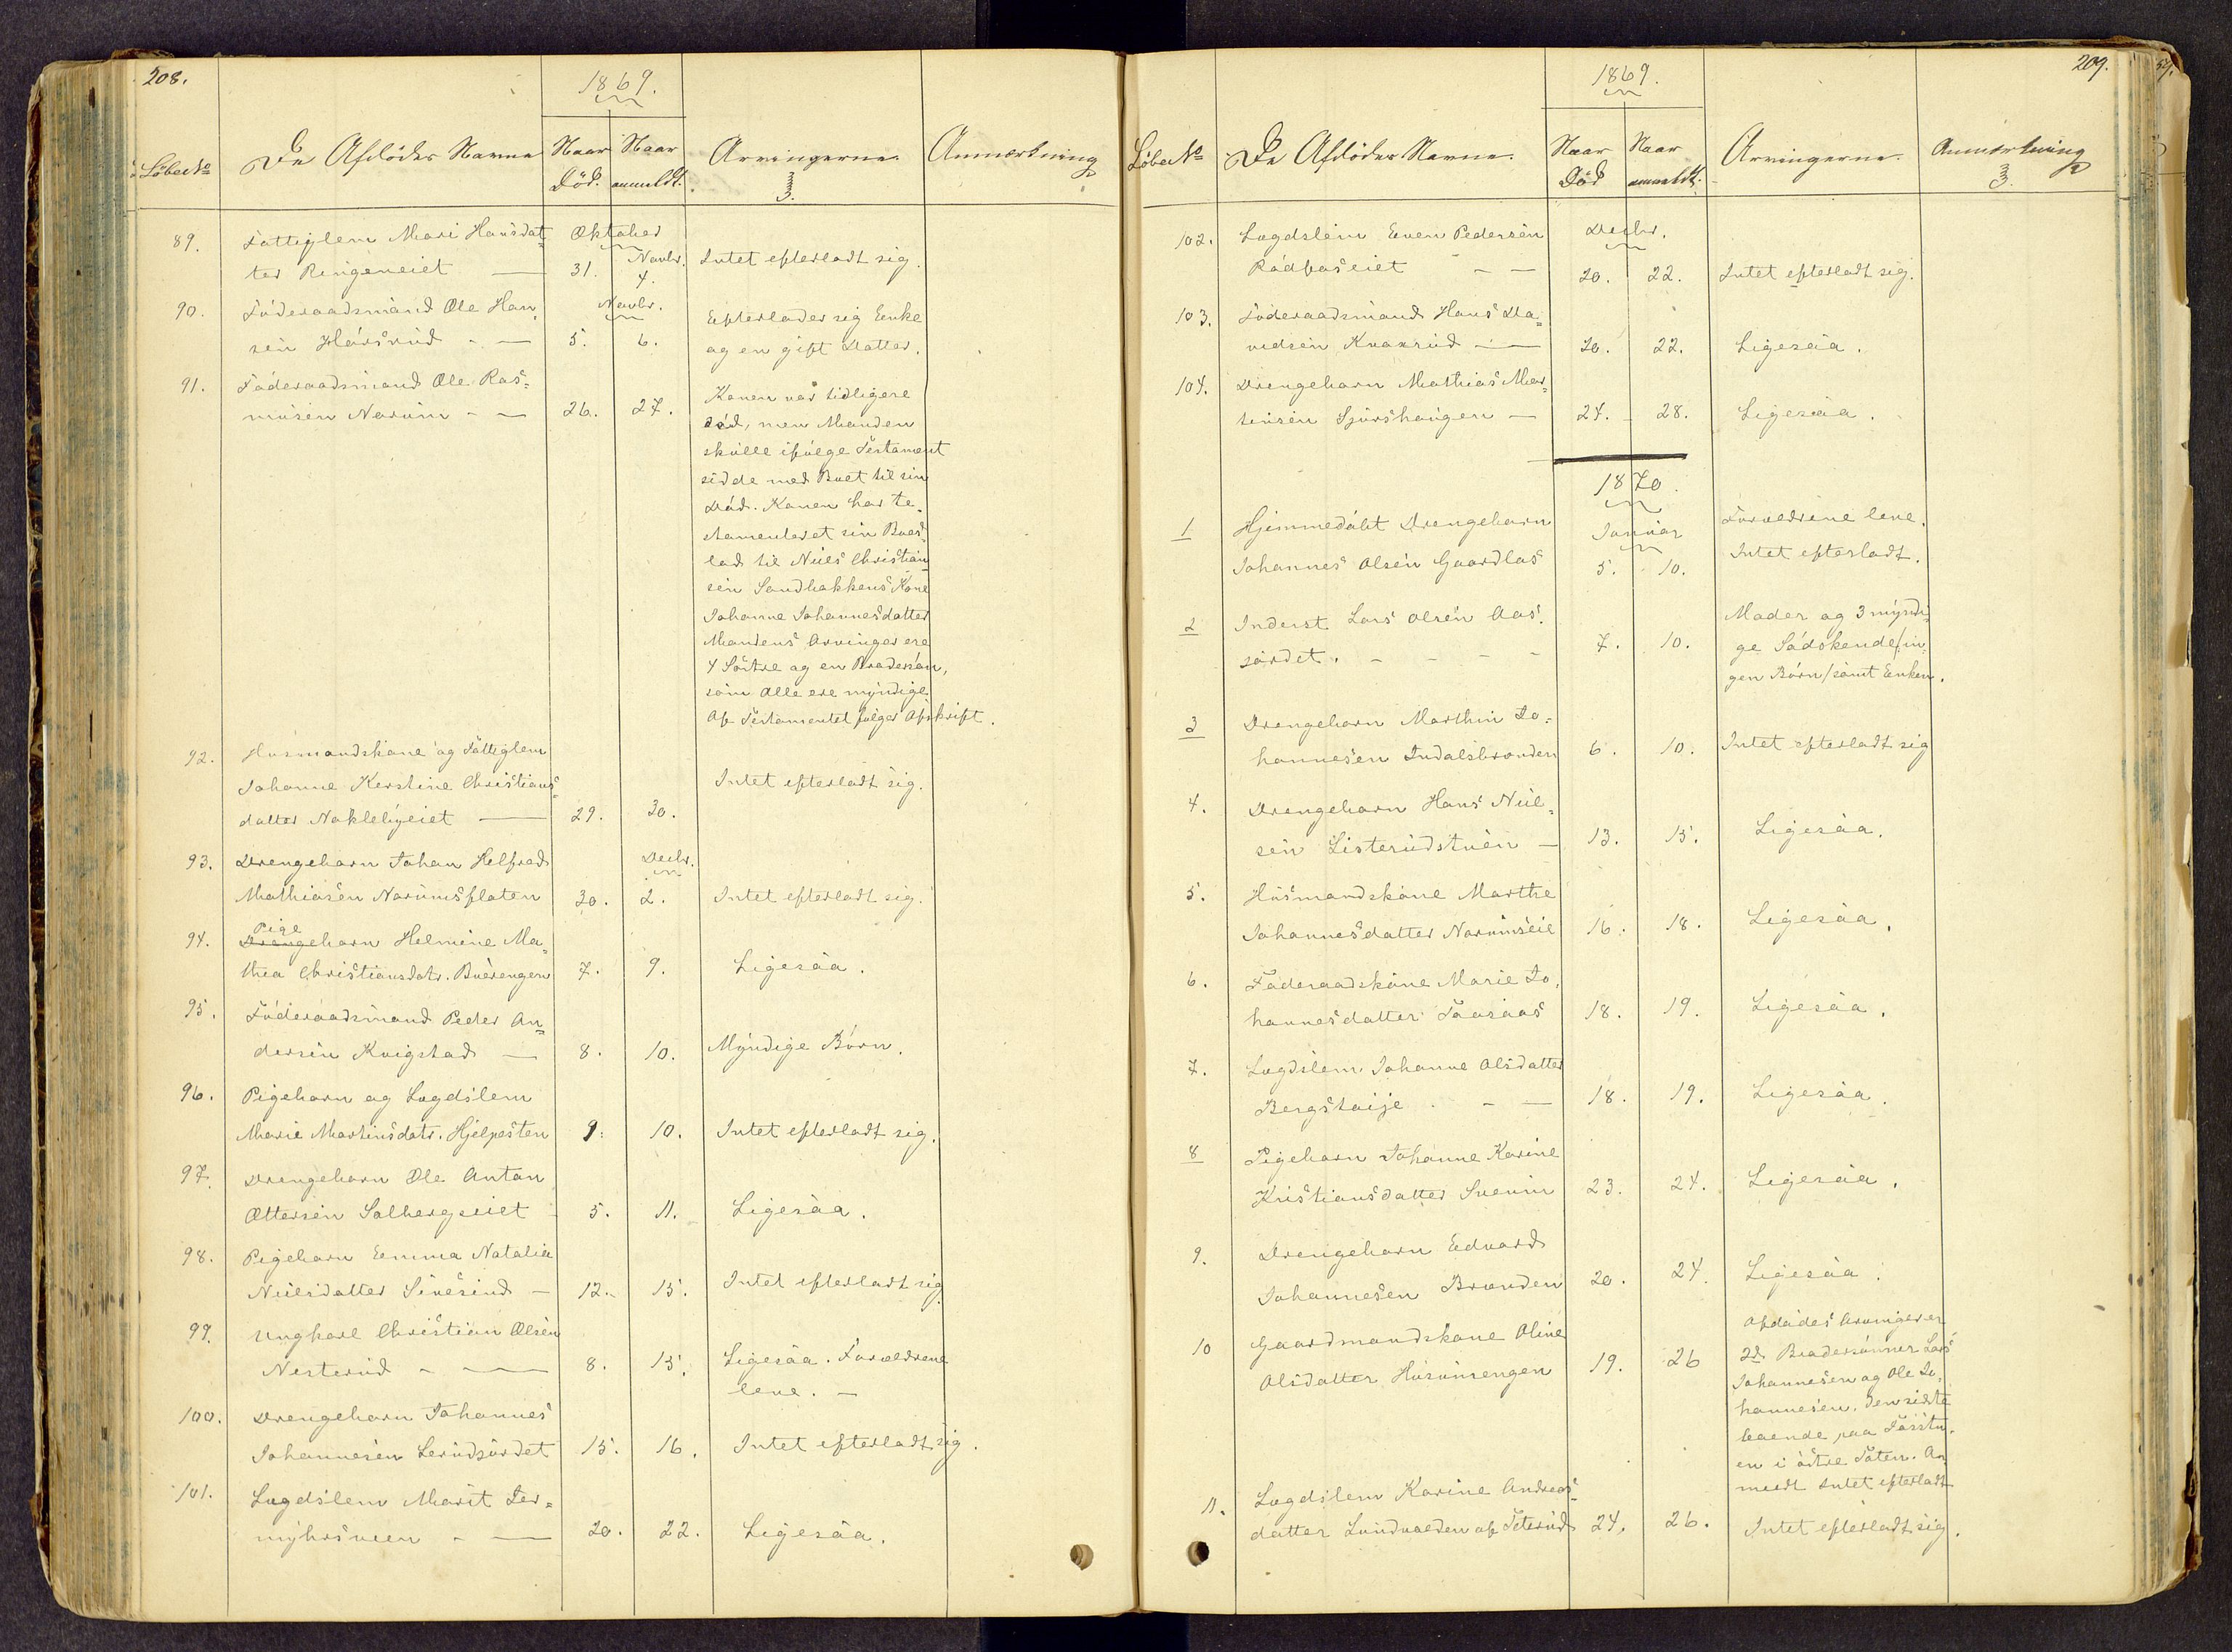 208.
1869.
Löbe No
De Afdödes Navne
Naar Död.
Naar anmeldt.
Arvingerne.
Anmærkning
89.
Fattiglem Mari Hansdat=
Oktober
ter Ringeneiet — 31. Novbr. 4. Intet efterladt sig.
90.
Föderaadsmand Ole Han=
Novbr.
Efterlader sig Enke
sen Hársrud - — 5. 6. og en gift Datter.
91.
Föderaadsmand Ole Ras=
musen Narum - — 26. 27.
Konen var tidligere
död, men Manden
skulle ifölge Testament
sidde med Boet til sin
Död. Konen har te=
stamenteret sin Boes=
lod til Niels Christian
sen Sandbakkens Kone
Johanne Johannesdatter
Mandens Arvinger ere
4 Söstre og en Brodersön,
som Alle ere myndige.
Af Testamentet fölger Afskrift.
92.
Husmandskone og Fattiglem
Johanne Kerstine Christians=
Intet efterladt sig.
datter Naklebyeiet — 29. 30.
93.
Drengebarn Johan Helfred
Decbr.
Mathiasen Narumsflaten 30. 2. Intet efterladt sig.
94.
Pige
Drengebarn Helmine Ma=
thea Christiansdatr. Buerengen 7. 9. Ligesaa.
95.
Föderaadsmand Peder An=
dersen Kvigstad — 8. 10. Myndige Börn.
96.
Pigebarn og Lægdslem
Marie Martinsdatr. Hjelpesten 9. 10. Intet efterladt sig.
97.
Drengebarn Ole Anton
Ottersen Solbergseiet - 5. 11. Ligesaa.
98.
Pigebarn Emma Natalia
Nielsdatter Sivesind — 12. 15. Intet efterladt sig
99.
Ungkarl Christian Olsen
Nesterud - — 8. 15. Ligesaa. Forældrene
leve. —
100.
Drengebarn Johannes
Johannesen Lerudjordet 15. 16. Intet efterladt sig.
101.
Lægdslem Marit Ter=
myhrsveen - — 20. 22. Ligesaa.
1869.
209.
Löbe No
De Afdödes Navne.
Naar Död
Naar anmeldt.
Arvingerne.
Anmærkning
102.
Lægdslem Even Pedersen
Decbr.
Rödfoseiet - — 20. 22. Intet efterladt sig.
103.
Föderaadsmand Hans Da=
vidsen Kraxrud — 20. 22. Ligesaa.
104.
Drengebarn Mathias Mar=
tinsen Sjurshaugen — 24. 28. Ligesaa.
1870.
1
Hjemmedöbt Drengebarn
Januar
Forældrene leve.
Johannes Olsen Gaardlös 5. 10. Intet efterladt.
2
Inderst Lars Olsen Aas=
Moder og 3 myndi=
jordet. - - - - 7. 10. ge Södskende/in=
gen Börn/samt Enken.
3
Drengebarn Marthin Jo=
hannesen Indalsbraaden 6. 10. Intet efterladt sig
4.
Drengebarn Hans Niel=
sen Listerudstuen — 13. 15. Ligesaa.
5.
Husmandskone Marthe
Johannesdatter Narumseie 16. 18. Ligesaa.
6.
Föderaadskone Marie Jo=
hannesdatter Taasaas 18. 19. Ligesaa.
7.
Lægdslem Johanne Olsdatter
Bergstøije - — 18. 19. Ligesaa.
8
Pigebarn Johanne Karine
Kristiansdatter Sveum 23. 24. Ligesaa.
9.
Drengebarn Edvard
Johannesen Braaden 20. 24. Ligesaa.
10
Gaardmandskone Oline
Olsdatter Husumengen 19. 26
Afdödes Arvinger er
2de Brödersønner Lars
Johannesen og Ole Jo=
hannesen. Den sidste
boende paa Fösstu=
en i östre Toten. An=
meldt Intet efterladt
11.
Lægdslem Karine Andreas=
datter Lundvolden af Teterud 24. 26. Intet efterladt sig.